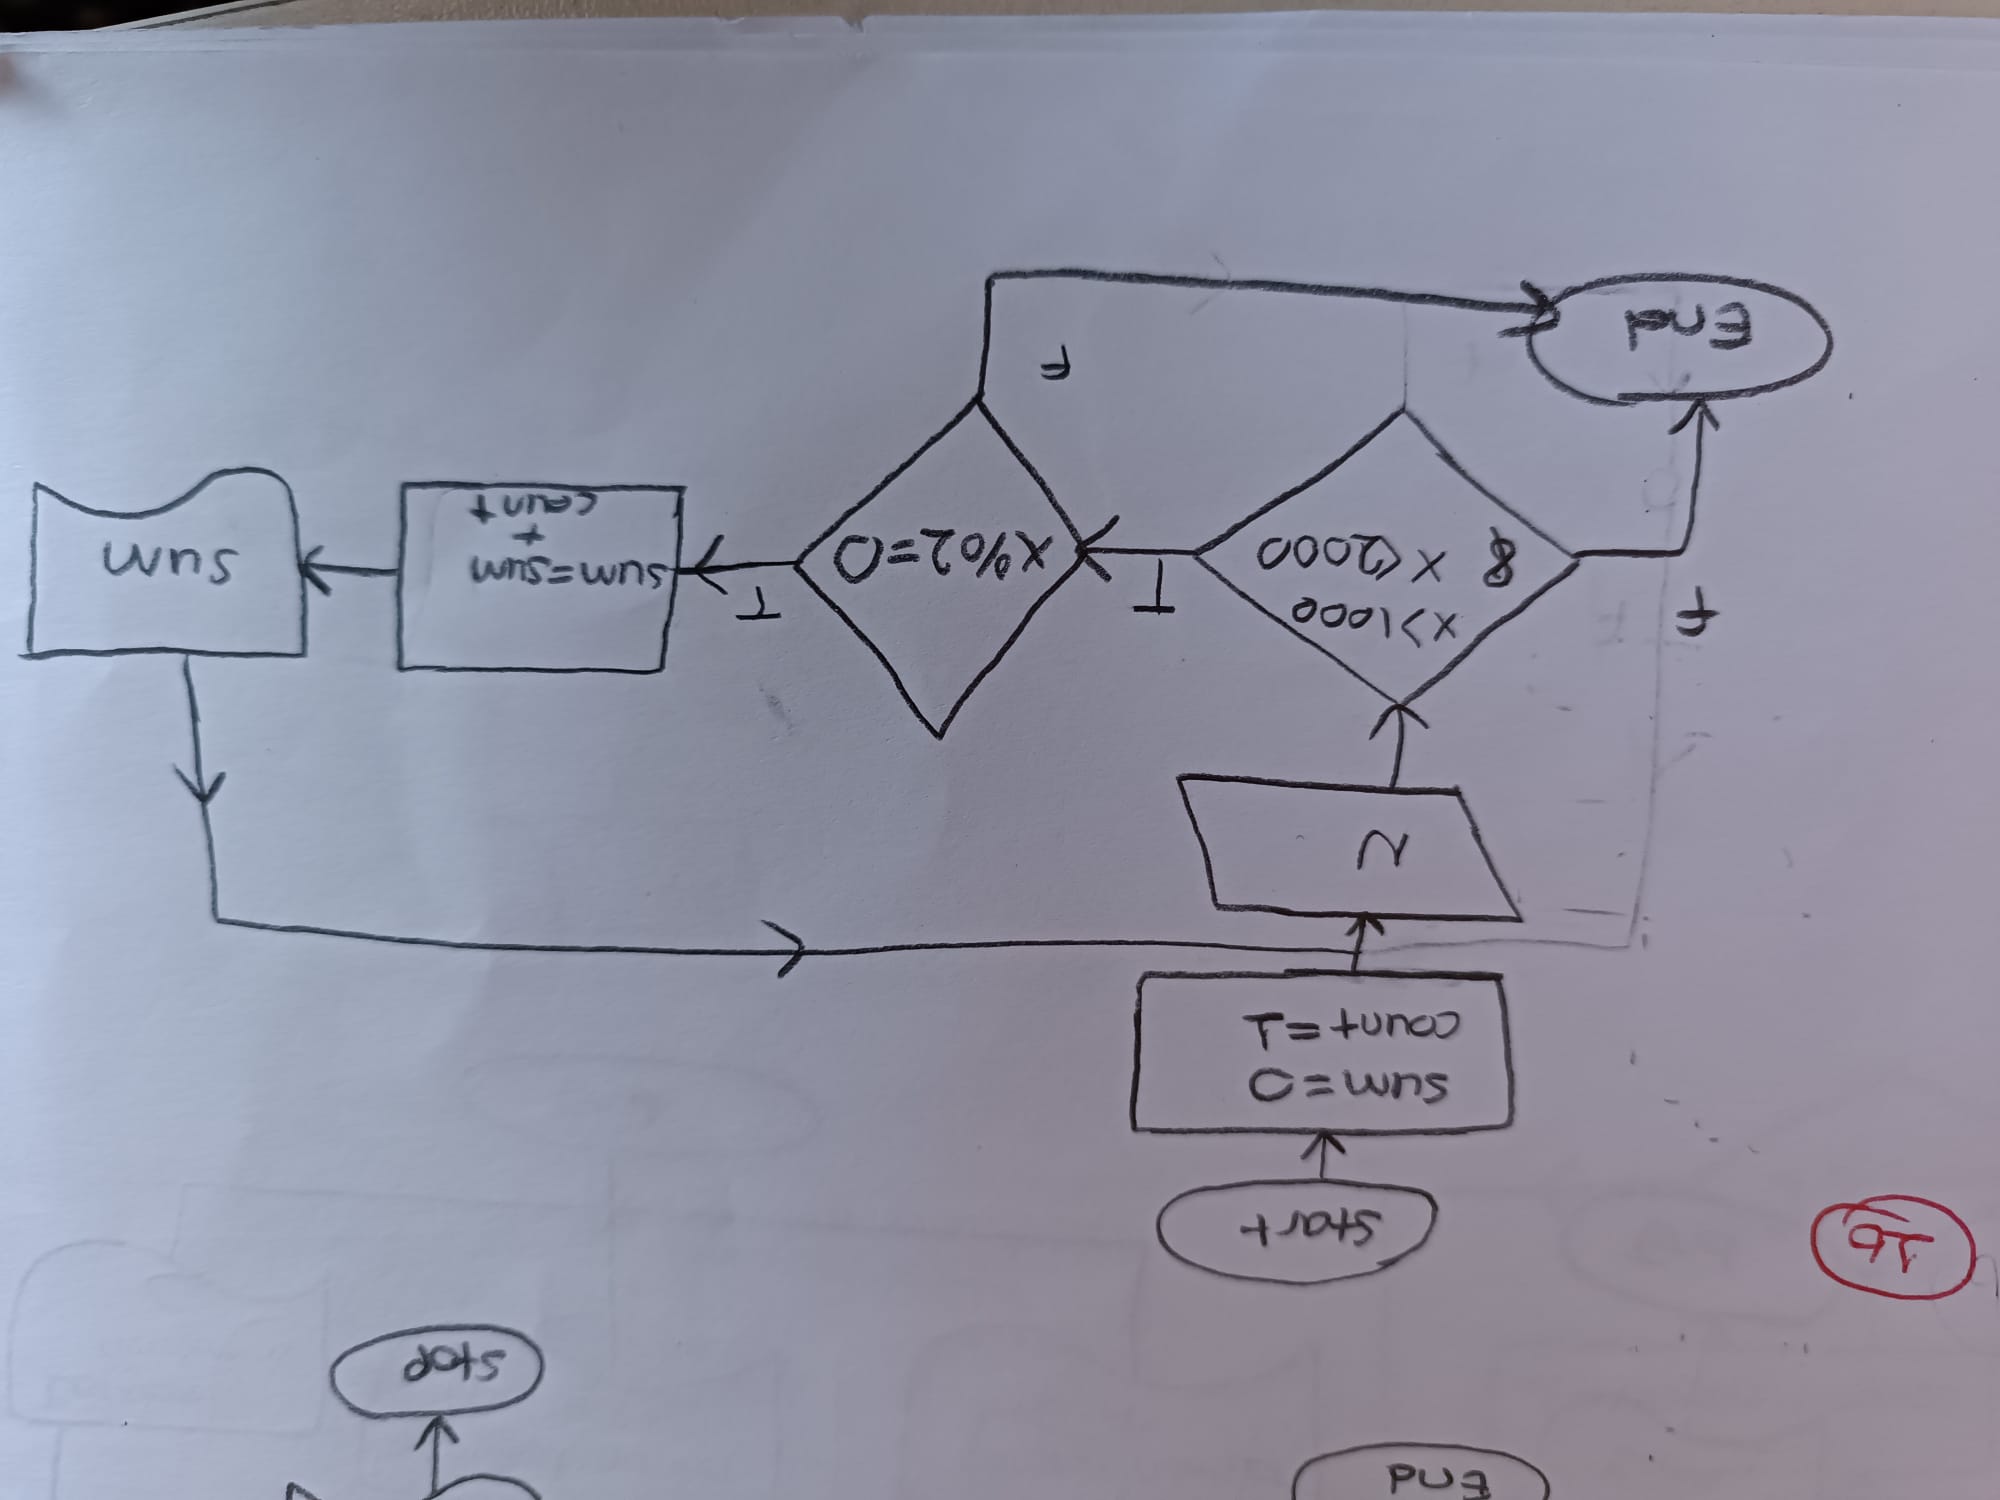 End
Stop
16
Start
sum=0
count=1
N
x>1000
& x<2000
f
T
x%2=0
T
F
sum=sum
+
count
sum
End